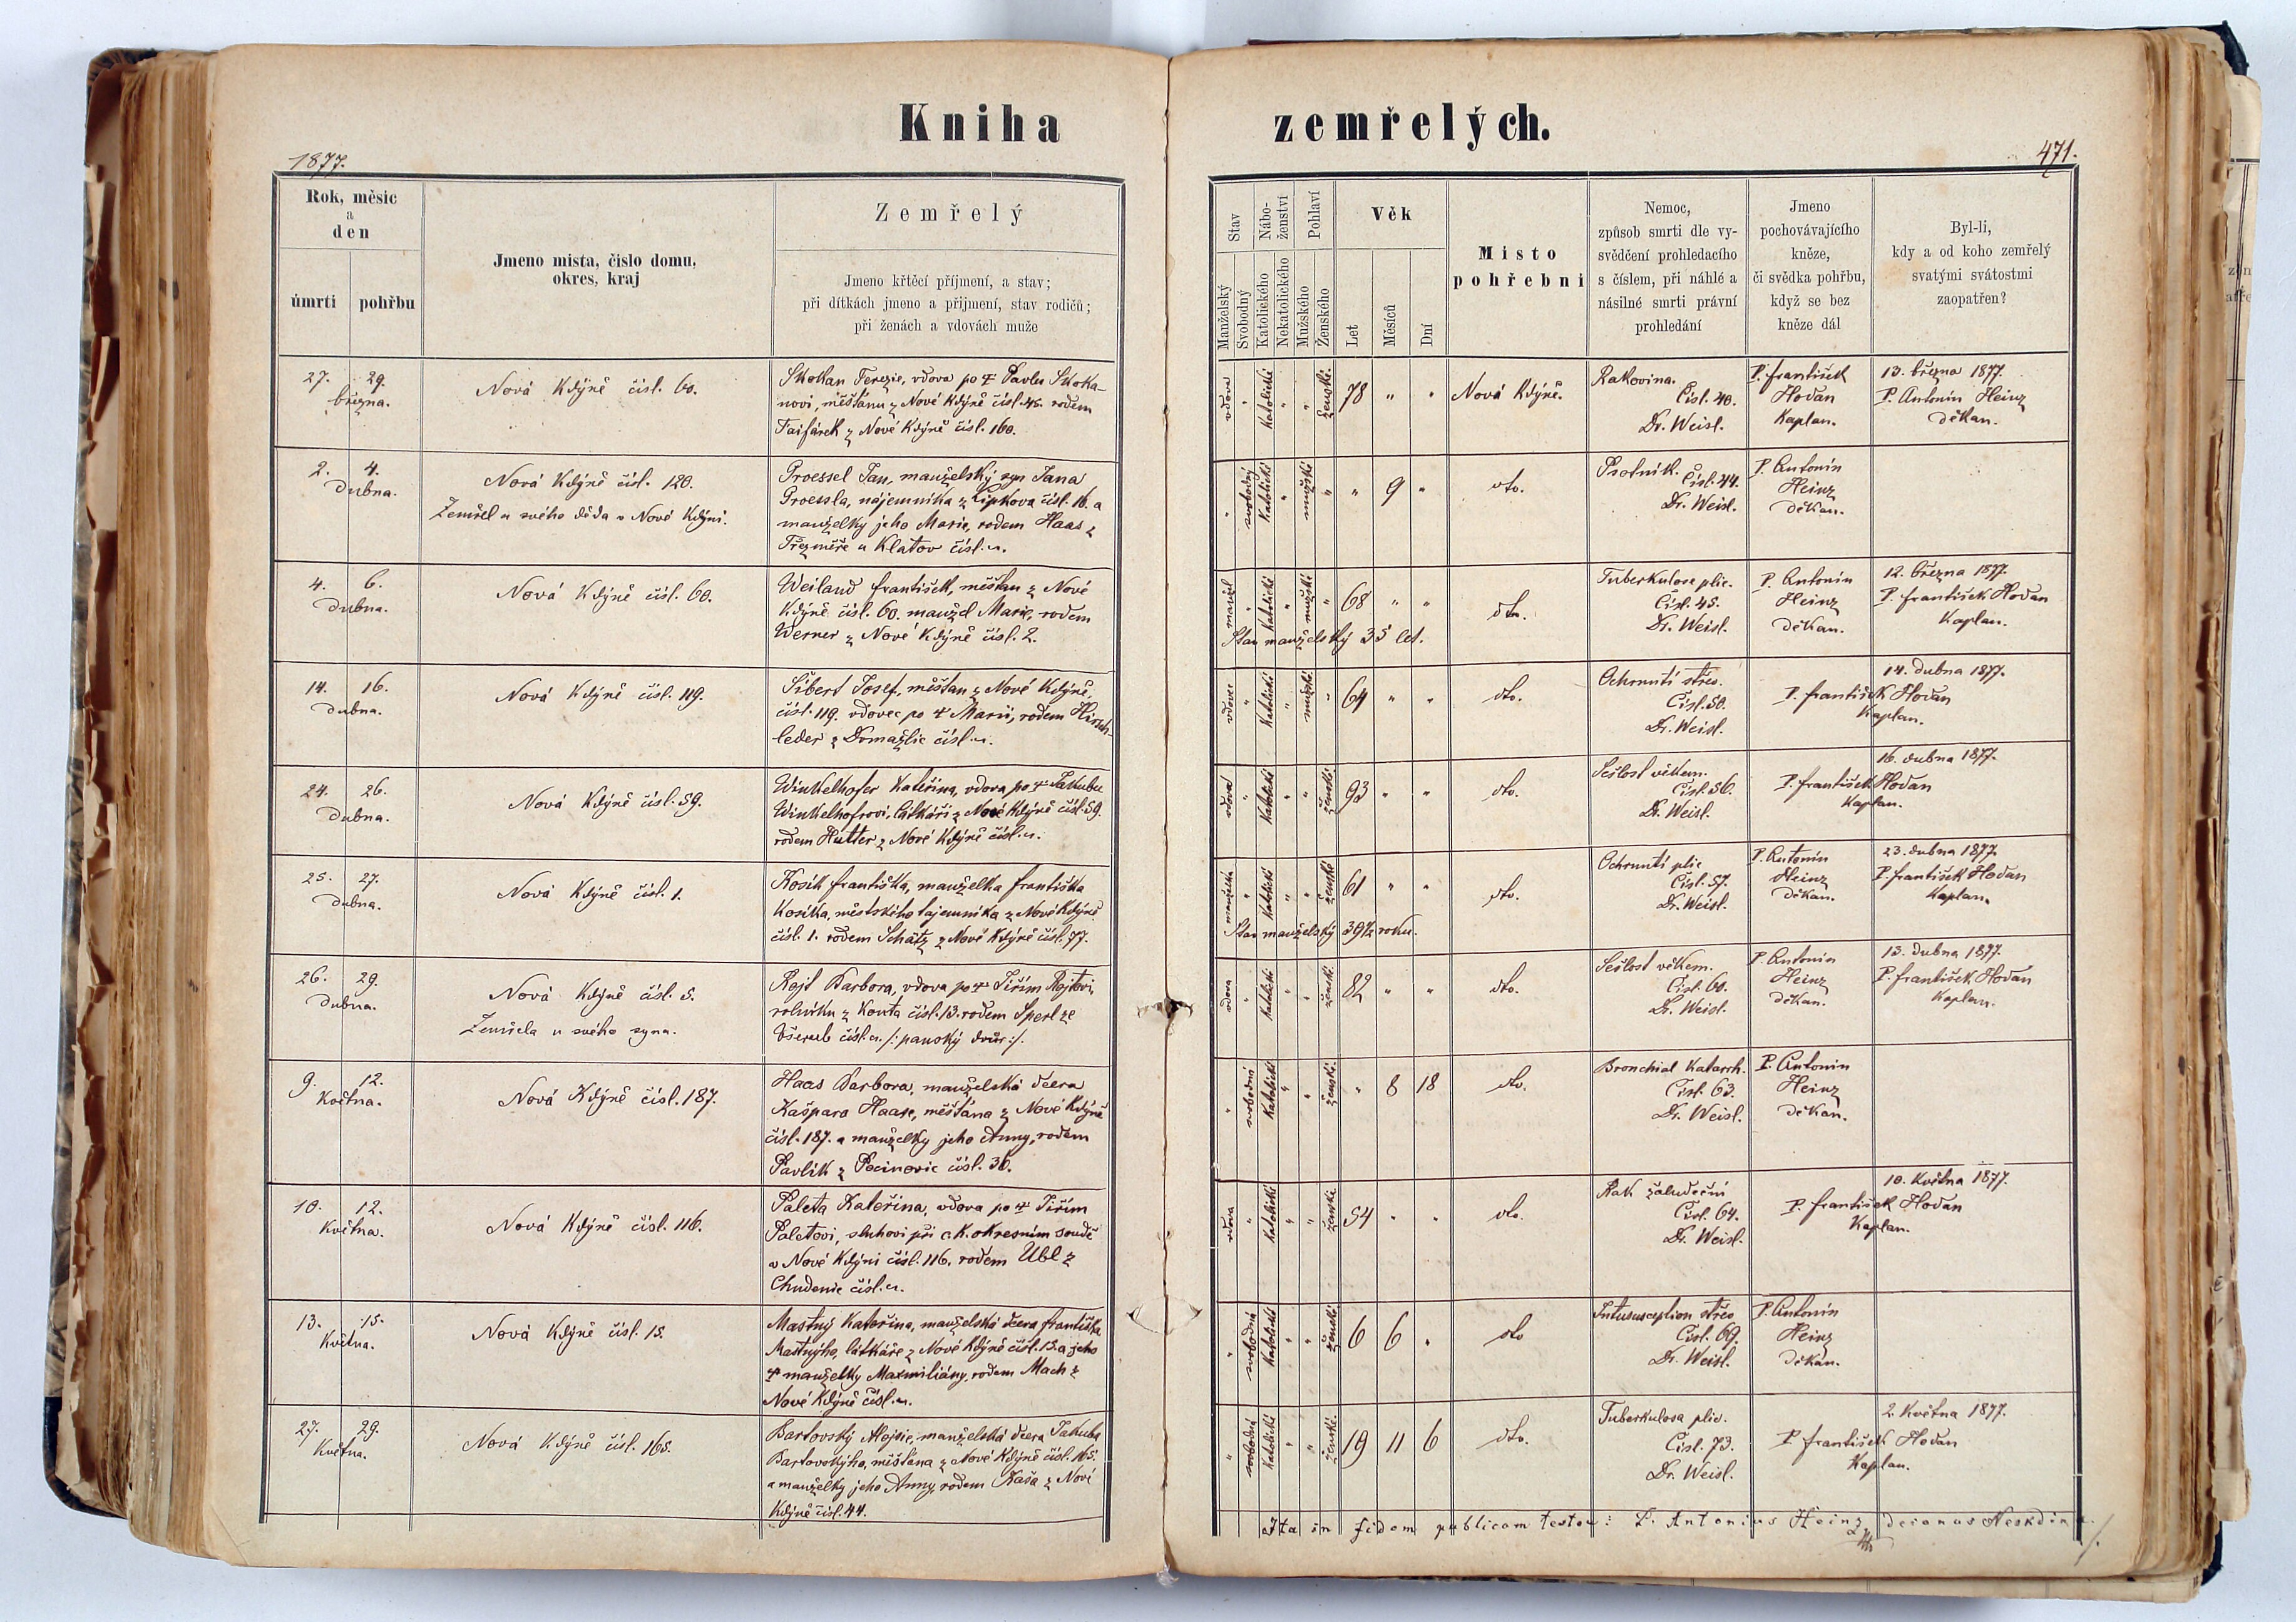 Kniha zemřelých.
1877.
471.
Rok, měsíc
a
den
úmrtí
pohřbu
Jmeno místa, číslo domu,
okres, kraj
Zemřelý
Jmeno křtěcí příjmení, a stav;
při dítkách jmeno a příjmení, stav rodičů;
při ženách a vdovách muže
Stav
Manželský
Svobodný
Nábo-
ženství
Katolického
Nekatolického
Pohlaví
Mužského
Ženského
Věk
Let
Měsíců
Dní
Místo
pohřební
Nemoc,
způsob smrti dle vy-
svědčení prohledacího
s číslem, při náhlé a
násilné smrti právní
prohledání
Jmeno
pochovávajícího
kněze,
či svědka pohřbu,
když se bez
kněze dál
Byl-li,
kdy a od koho zemřelý
svatými svátostmi
zaopatřen?
27. 29.
března.
Nová Kdýně čísl. 60.
Skokan Terezie, vdova po † Pavlu Skoka-
novi, měšťanu z Nové Kdýně čísl. 46. rodem
Taifárek z Nové Kdýně čísl. 160.
vdova " Katolické " " ženské.
78 " "
Nová Kdýně.
Rakovina.
Čísl. 40.
Dr. Weisl.
P. František
Hodan
Kaplan.
13. března 1877.
P. Antonín Heinz
děkan.
2. 4.
Dubna.
Nová Kdýně čísl. 120.
Zemřel u svého děda v Nové Kdýni.
Groessel Jan, manželský syn Jana
Groessla, nájemníka z Lipkova čísl. 16. a
manželky jeho Marie, rodem Haas z
Třezmíře u Klatov čísl. n.
" svobodný Katolické " mužské "
" 9 "
dto.
Psotník.
Čísl. 44.
Dr. Weisl.
P. Antonín
Heinz
děkan.
4. 6.
Dubna.
Nová Kdýně čísl. 60.
Weiland František, měšťan z Nové
Kdýně čísl. 60. manžel Marie, rodem
Werner z Nové Kdýně čísl. 2.
manžel " Katolické " mužské "
68 " "
Stav manželský 35 let.
dto.
Tuberkulosa plic.
Čísl. 45.
Dr. Weisl.
P. Antonín
Heinz
děkan.
12. března 1877.
P. František Hodan
Kaplan.
14. 16.
Dubna.
Nová Kdýně čísl. 119.
Šibert Josef, měšťan z Nové Kdýně,
čísl. 119. vdovec po † Marii, rodem Hirsch-
leder z Domažlic čísl. n.
vdovec " Katolické " mužské "
64 " "
dto.
Ochrnutí střev.
Čísl. 50.
Dr. Weisl.
14. dubna 1877.
P. František Hodan
Kaplan.
24. 26.
Dubna.
Nová Kdýně čísl. 59.
Winkelhofer Kateřina, vdova po † Jakubu
Winkelhofrovi, látkáři z Nové Kdýně čísl. 59.
rodem Hutter z Nové Kdýně čísl. n.
vdova " Katolické " " ženské.
93 " "
dto.
Sešlost věkem.
Čísl. 56.
Dr. Weisl.
16. dubna 1877.
P. František Hodan
Kaplan.
25. 27.
Dubna.
Nová Kdýně čísl. 1.
Kosík Františka, manželka Františka
Kosíka, městského tajemníka z Nové Kdýně
čísl. 1. rodem Schätz z Nové Kdýně čísl. 77.
manželka " Katolické " " ženské
61 " "
Stav manželský 39½ roku.
dto.
Ochrnutí plic
Čísl. 57.
Dr. Weisl.
P. Antonín
Heinz
děkan.
23. dubna 1877.
P. František Hodan
Kaplan.
26. 29.
Dubna.
Nová Kdýně čísl. 5.
Zemřela u svého syna.
Rojt Barbora, vdova po † Jiřím Rojtovi,
rolníku z Kouta čísl. 13. rodem Sperl ze
Všerub čísl. n. /: panský dvůr :/.
vdova " Katolické " " ženské.
82 " "
dto.
Sešlost věkem.
Čísl. 60.
Dr. Weisl.
P. Antonín
Heinz
děkan.
13. dubna 1877.
P. František Hodan
Kaplan.
9. 12.
Května.
Nová Kdýně čísl. 187.
Haas Barbora, manželská dcera
Kašpara Haase, měšťana z Nové Kdýně
čísl. 187. a manželky jeho Anny, rodem
Pavlík z Pocinovic čísl. 36.
" svobodná Katolické " " ženské.
" 8 18
dto.
Bronchial Katarrh.
Čísl. 63.
Dr. Weisl.
P. Antonín
Heinz
děkan.
10. 12.
Května.
Nová Kdýně čísl. 116.
Paleta Kateřina, vdova po † Jiřím
Paletovi, sluhovi při c. k. okresním soudě
v Nové Kdýni čísl. 116. rodem Ubl z
Chudenic čísl. n.
vdova " Katolické " " ženské.
54 " "
dto.
Rak žaludeční
Čísl. 64.
Dr. Weisl.
10. Května 1877.
P. František Hodan
Kaplan.
13. 15.
Května.
Nová Kdýně čísl. 15.
Mastný Kateřina, manželská dcera Františka
Mastnýho, látkáře z Nové Kdýně čísl. 15. a jeho
† manželky Maxmiliány, rodem Mach z
Nové Kdýně čísl. n.
" svobodná Katolické " " ženské
6 6 "
dto
Intususception střev
Čísl. 69.
Dr. Weisl.
P. Antonín
Heinz
děkan.
27. 29.
Května.
Nová Kdýně čísl. 165.
Bartovský Aloisie, manželská dcera Jakuba
Bartovskýho, měšťana z Nové Kdýně čísl. 165.
a manželky jeho Anny, rodem Kaša z Nové
Kdýně čísl. 44.
" svobodná Katolické " " ženské.
19 11 6
dto.
Tuberkulosa plic.
Čísl. 73.
Dr. Weisl.
2. Května 1877.
P. František Hodan
Kaplan.
Ita in fidem publicam testor: P. Antonius Heinz decanus Neokdin.